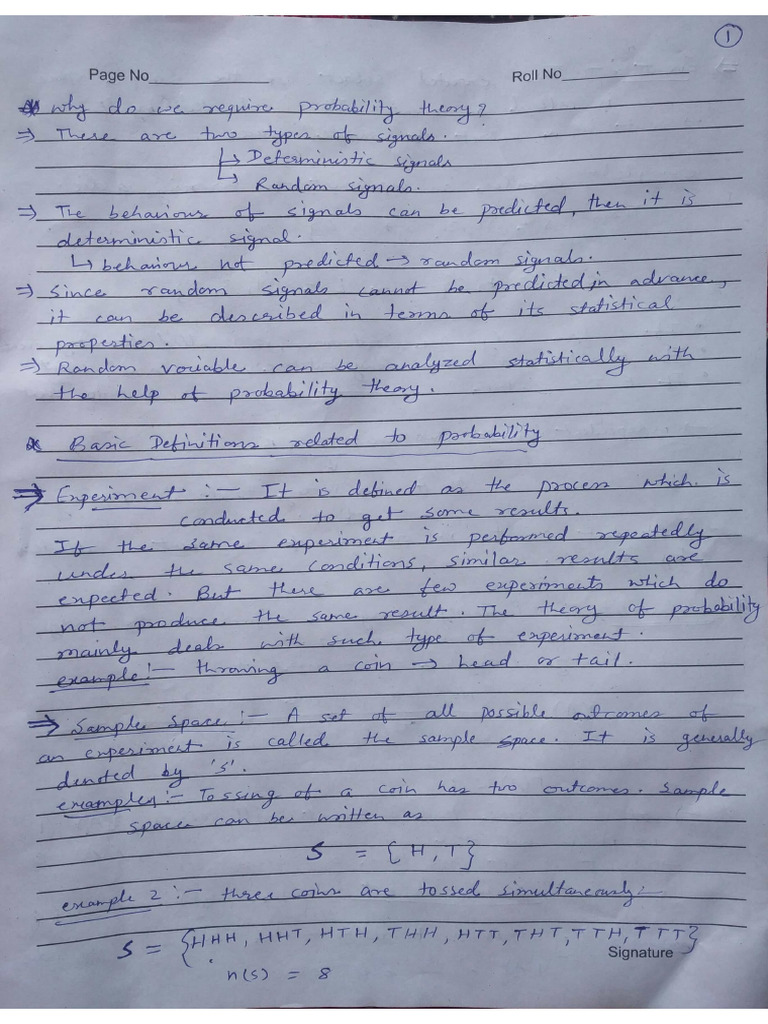 1
Page No____________ Roll No____________
* Why do we require probability theory?
⇒ These are two types of signals.
↳ Deterministic signals
↳ Random signals.
⇒ The behaviour of signals can be predicted, then it is
deterministic signal.
↳ behaviour not predicted → random signals.
⇒ Since random signals cannot be predicted in advance,
it can be described in terms of its statistical
properties.
⇒ Random variable can be analyzed statistically with
the help of probability theory.
* Basic Definitions related to probability
⇒ Experiment :- It is defined as the process which is
conducted to get some results.
If the same experiment is performed repeatedly
under the same conditions, similar results are
expected. But there are few experiments which do
not produce the same result. The theory of probability
mainly deals with such type of experiment.
example:- throwing a coin → head or tail.
⇒ Sample Space :- A set of all possible outcomes of
an experiment is called the sample space. It is generally
denoted by 'S'.
example1:- Tossing of a coin has two outcomes. Sample
space can be written as
S = {H, T}
example 2 :- three coins are tossed simultaneously:-
S = {HHH, HHT, HTH, THH, HTT, THT, TTH, TTT}
Signature
n(s) = 8